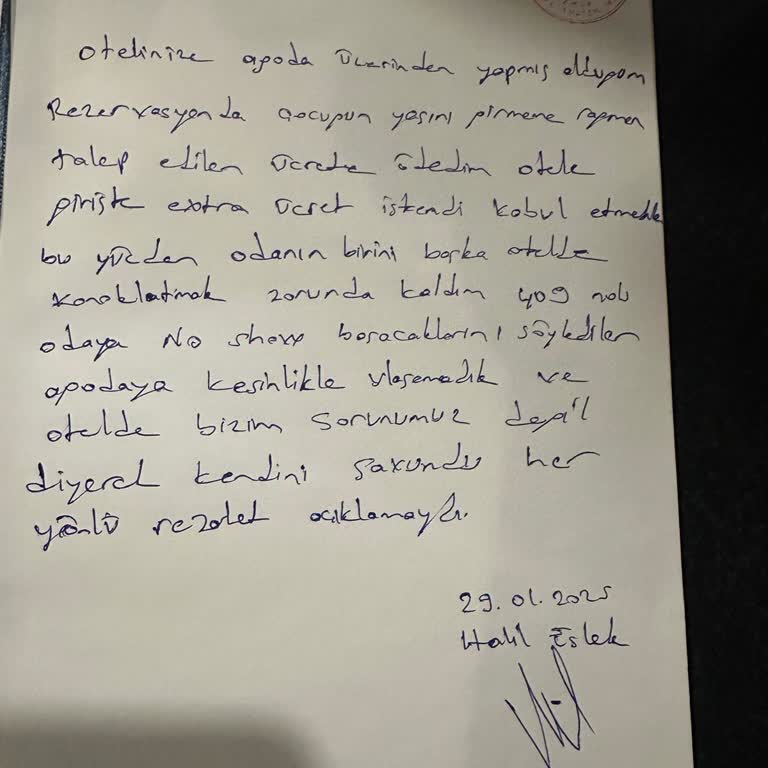 otelinize agoda üzerinden yapmış olduğum
Rezervasyonda çocuğun yaşını girmeme rağmen
talep edilen ücrete ödedim otele
girişte extra ücret istendi kabul etmedik
bu yüzden odanın birini başka otelde
konaklatmak zorunda kaldım 409 nolu
odaya No show basacaklarını söylediler
agodaya kesinlikle ulaşamadık ve
otelde bizim sorunumuz değil
diyerek kendini savundu her
yönlü rezalet açıklamaydı.
29.01.2025
Halil Eslek